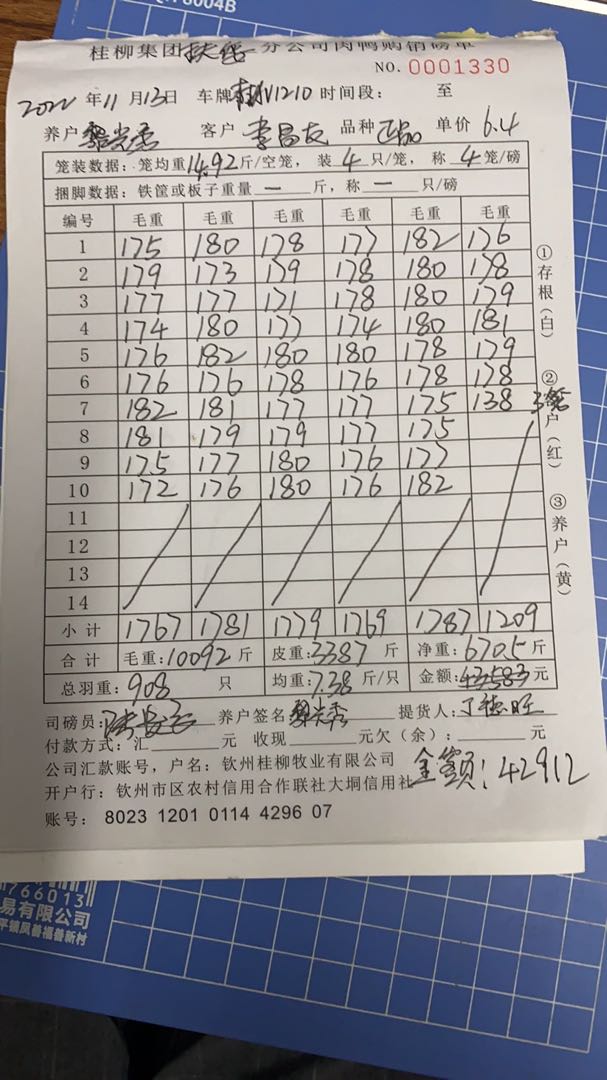 6004B
桂柳集团扶绥分公司肉鸭购销磅单
NO. 0001330
2022年11月13日 车牌 1210 时间段： 至
养户 黎光秀 客户 李昌友 品种 正品 单价 6.4
笼装数据：笼均重14.92斤/空笼，装 4 只/笼，称 4 笼/磅
捆脚数据：铁筐或板子重量 — 斤，称 — 只/磅
编号 毛重 毛重 毛重 毛重 毛重 毛重
1 175 180 178 177 182 176
2 179 173 179 178 180 178
3 177 177 171 178 180 179
4 174 180 177 174 180 181
5 176 182 180 180 178 179
6 176 176 178 176 178 178
7 182 181 177 177 175 138 3笼
8 181 179 179 177 175
9 175 177 180 176 177
10 172 176 180 176 182
11
12
13
14
小计 1767 1781 1779 1769 1787 1209
合计 毛重：10092斤 皮重：3387斤 净重：6705斤
总羽重：908 只 均重：7.38斤/只 金额：43583元
①存根（白）
②客户（红）
③养户（黄）
司磅员： 养户签名 黎光秀 提货人：丁德旺
付款方式：汇 元 收现 元欠（余）： 元
公司汇款账号，户名：钦州桂柳牧业有限公司 金额：42912
开户行：钦州市区农村信用合作联社大垌信用社
账号： 8023 1201 0114 4296 07
766013
易有限公司
平镇凤善福善新村